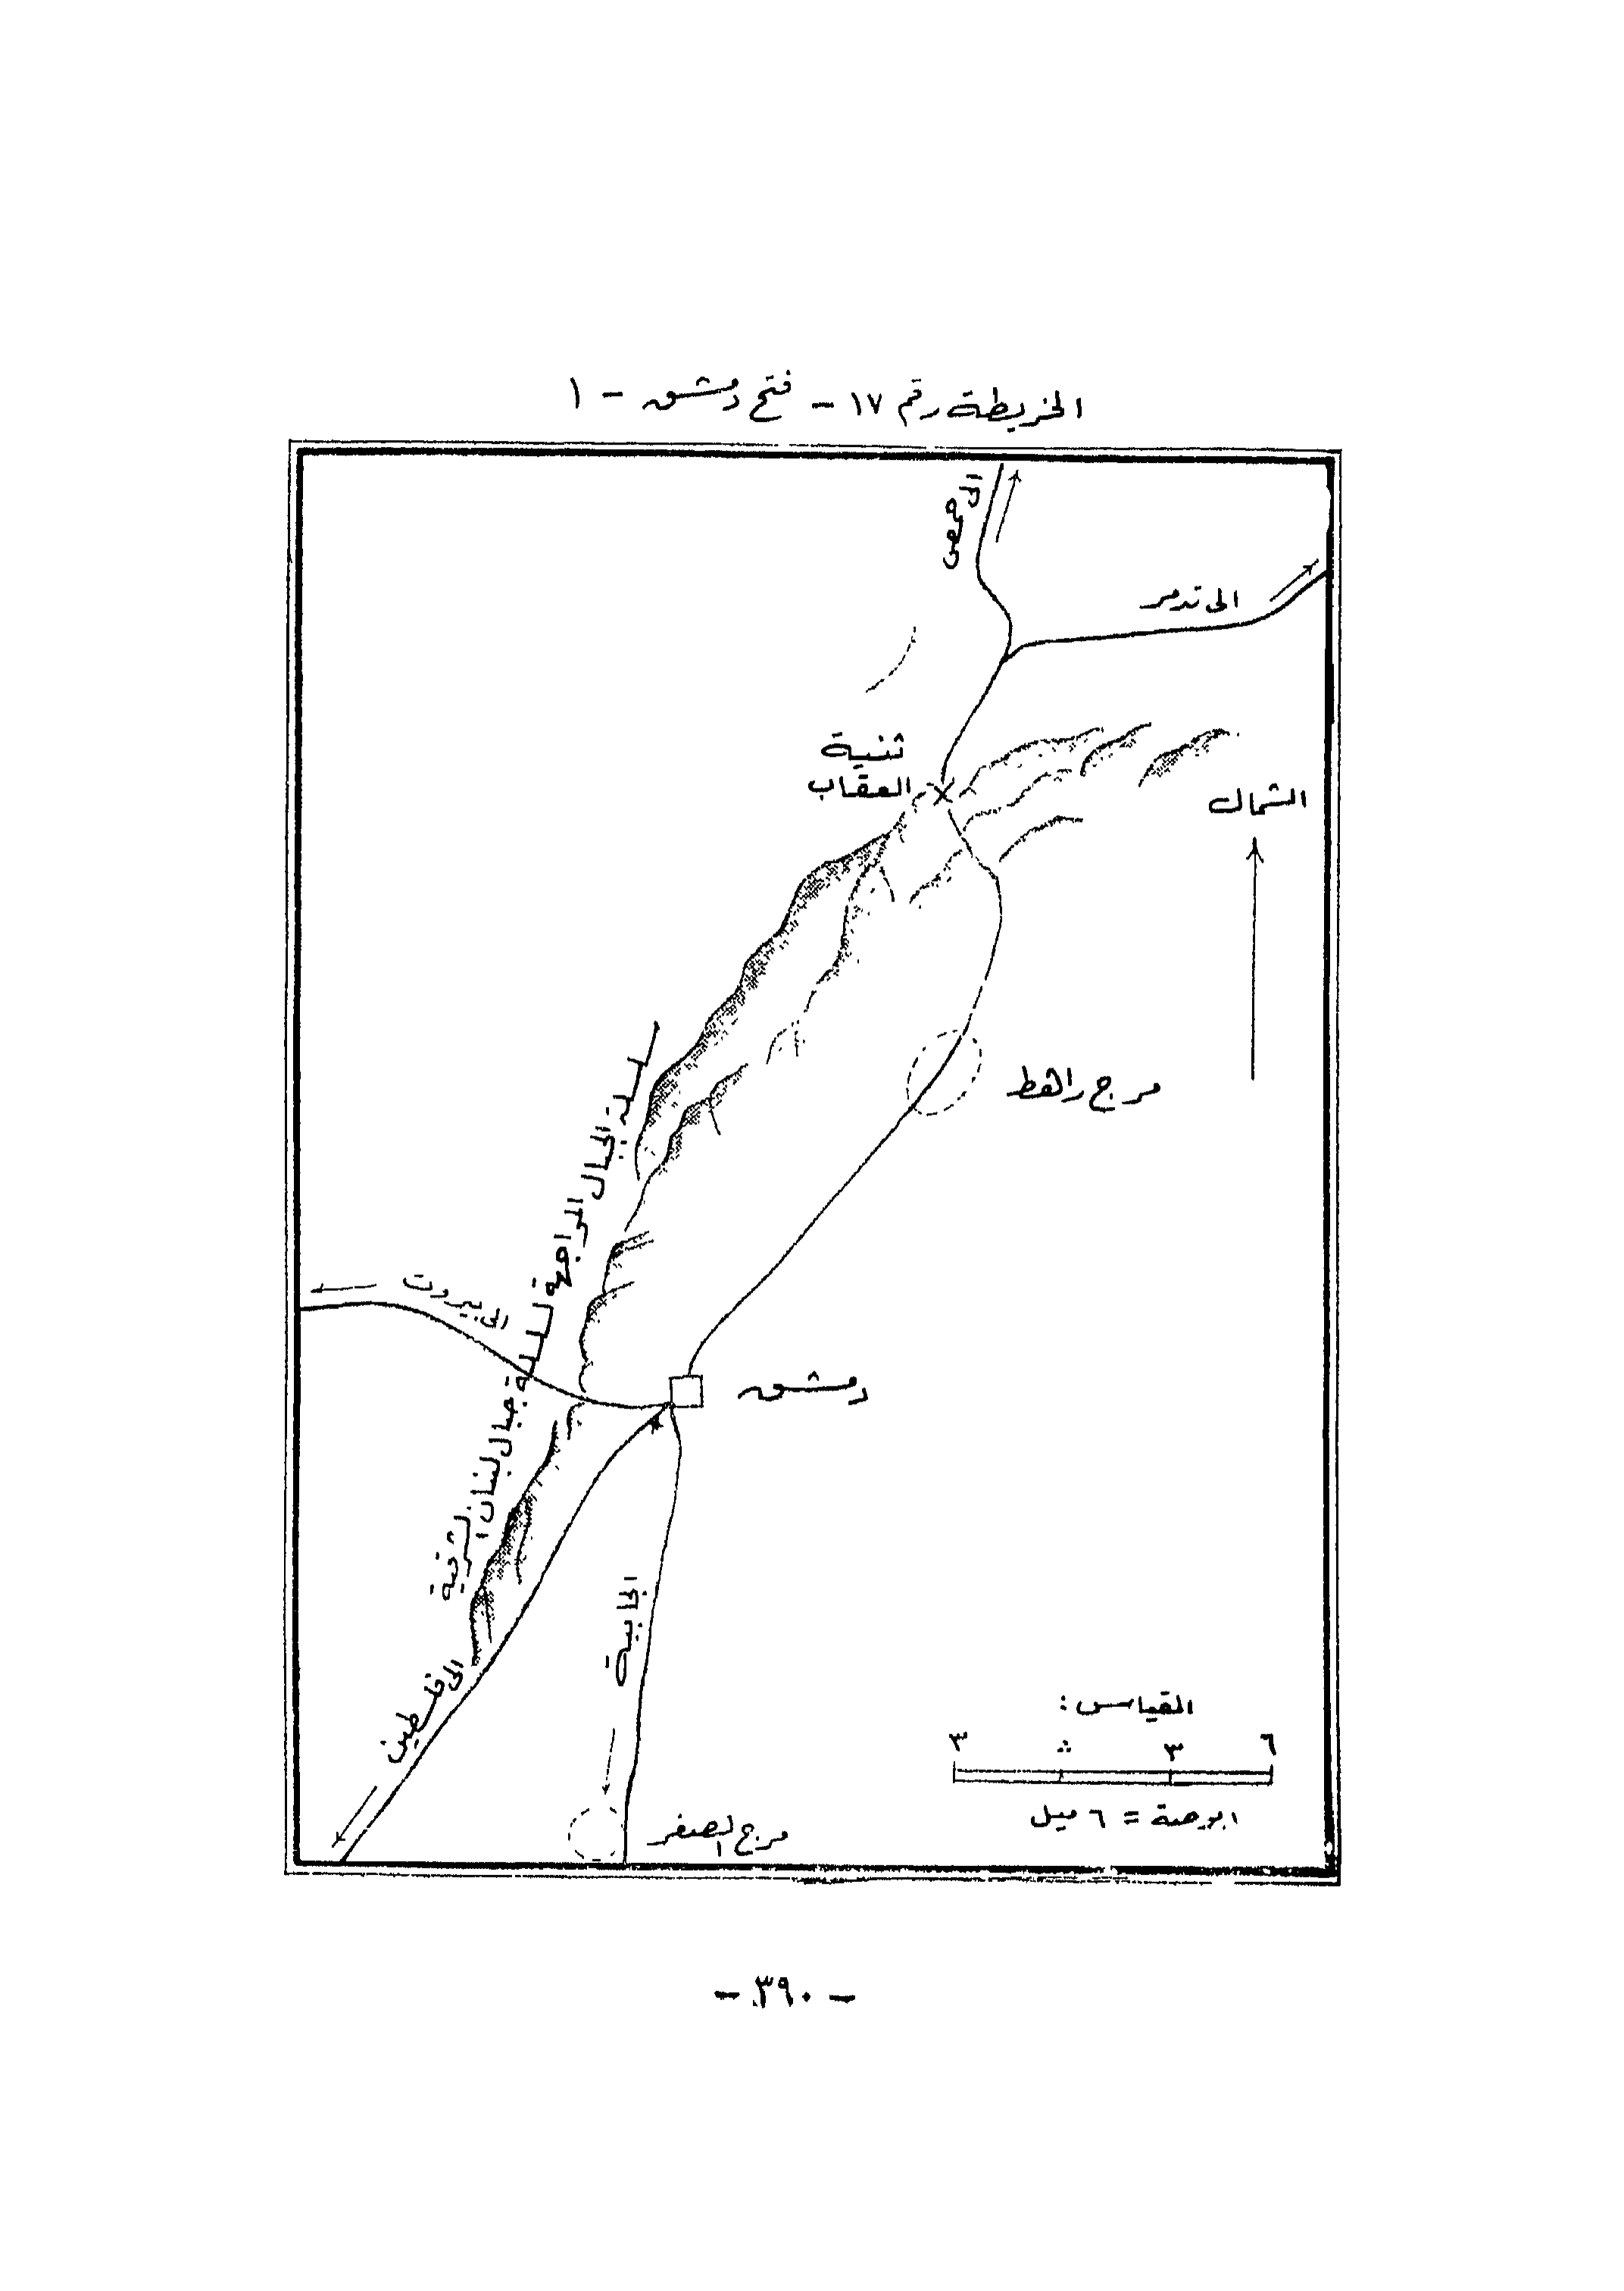 الخريطة رقم ١٧ - فتح دمشق - ١
الى حمص
الى تدمر
ثنية
العقاب
الشمال
مرج راهط
سلسلة الجبال المواجهة لسلسلة جبال لبنان الشرقية
الى بيروت
دمشق
الجابية
الى فلسطين
مرج الصفر
القياس :
٣ ٣ ٦
ابوصة = ٦ ميل
- ٣٩٠ -